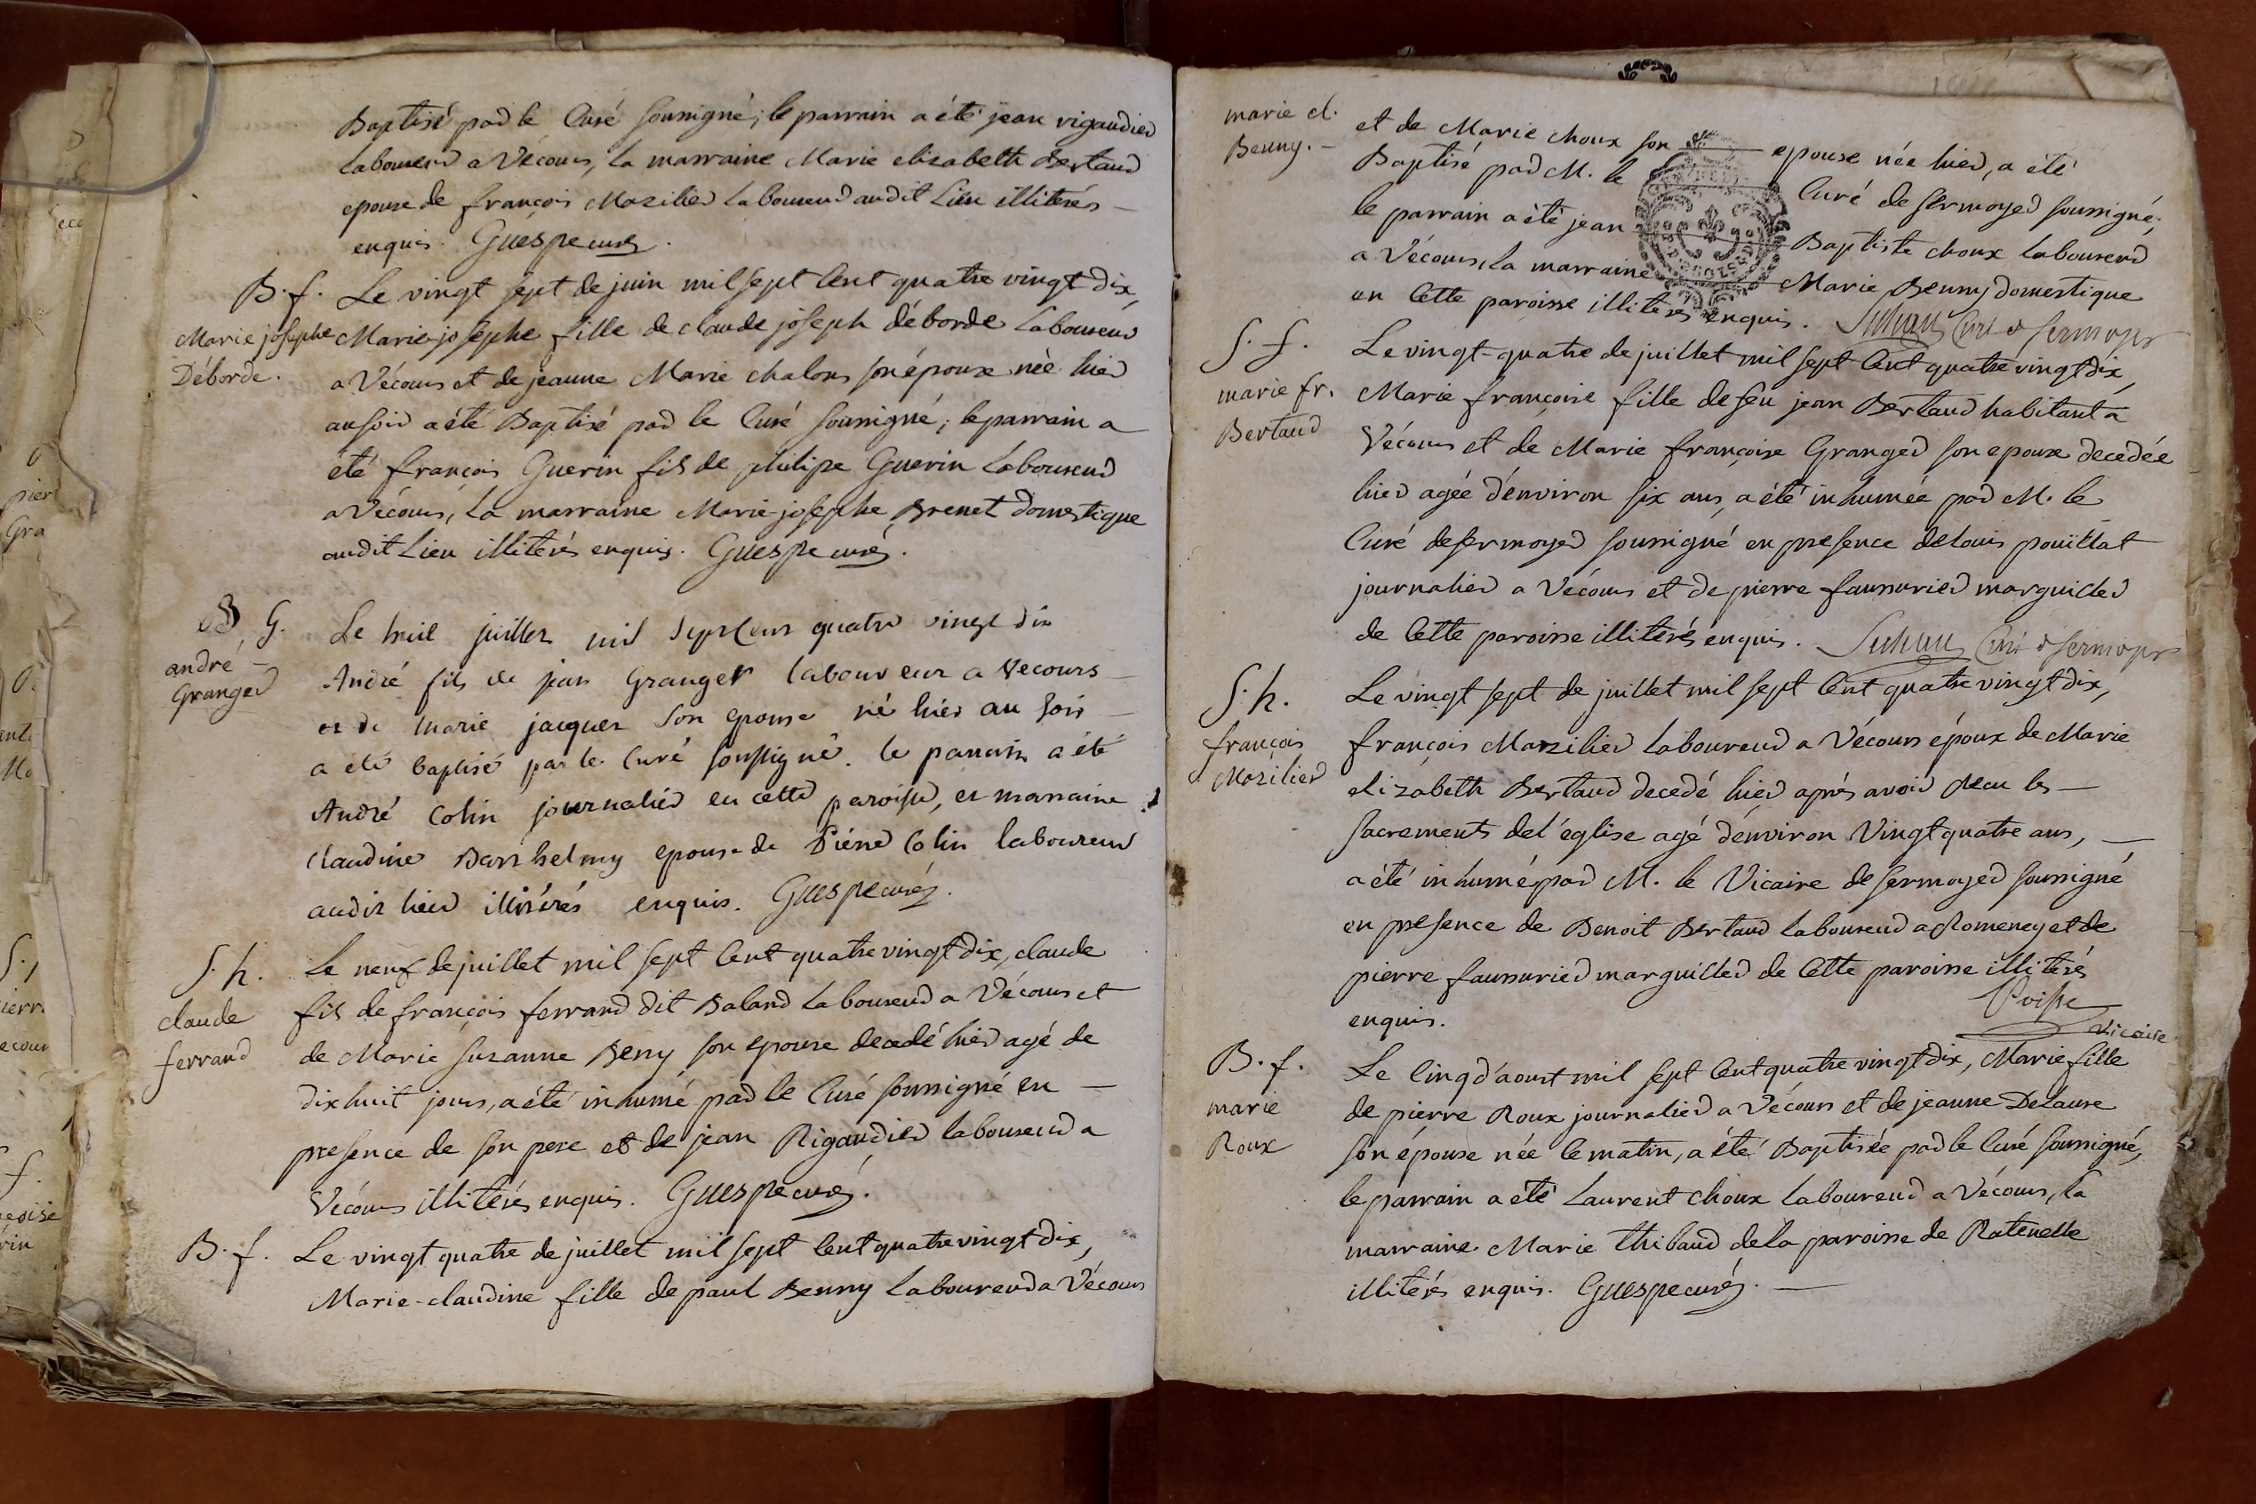 Baptisé par le Curé soussigné; le parrain a été jean rigaudier
laboureur a Vécours, la marraine Marie elisabeth Bertaud
epouse de françois Mazilier laboureur audit Lieu illiterés
enquis. Guespe curé.
B. f. Le vingt sept de juin mil sept Cent quatre vingt dix,
Marie josephe Marie-josephe fille de claude joseph déborde Laboureur
Déborde. a Vécours et de jeanne Marie chalons son épouse née hier
au soir a été Baptisé par le Curé soussigné; le parrain a
été françois Guerin fils de philipe Guerin Laboureur
a Vécours, la marraine Marie-josephe Brenet domestique
audit Lieu illiterés enquis. Guespe curé.
B, G. Le huit juillet mil sept Cent quatre vingt dix
andré André fils de jean Granger laboureur a Vecours
Granger et de marie jacques son epouse né hier au soir
a été baptisé par le Curé soussigné. le parrain a été
André Colin journalier en cette paroisse, et marraine
claudine Barthelmy epouse de Piérre Colin laboureur
audit lieu illitérés enquis. Guespe curé.
S. h. Le neuf de juillet mil sept Cent quatre vingt dix, claude
claude fils de françois ferrand dit Baland laboureur a Vécours et
ferrand de Marie suzanne Beny son epouse decedé hier agé de
dix huit jours, a été inhumé par le Curé soussigné en
presence de son pere et de jean Rigaudier laboureur a
Vécours illiterés enquis. Guespe curé.
B. f. Le vingt quatre de juillet mil sept Cent quatre vingt dix,
Marie-claudine fille de paul Benny Laboureur a Vécours
marie cl. et de Marie choux son epouse née hier, a été
Benny. Baptisé par M. le Curé de sermoyer soussigné;
le parrain a été jean Baptiste choux laboureur
a Vécours, la marraine Marie Benny domestique
en Cette paroisse illiterés enquis. Curé de sermoyer
S. f. Le vingt-quatre de juillet mil sept Cent quatre vingt dix,
marie fr. Marie françoise fille de feu jean Bertaud habitant a
Bertaud Vécours et de Marie françoise Granger son epouse decedée
hier agée d'environ six ans, a été inhumée par M. le
Curé de sermoyer soussigné en presence de Louis pouillat
journalier a Vécours et de pierre faussurier marguiller
de Cette paroisse illiterés enquis. Curé de sermoyer
S. h. Le vingt sept de juillet mil sept Cent quatre vingt dix,
françois françois Mazilier laboureur a Vécours époux de Marie
Mazilier elizabeth Bertaud decedé hier aprés avoir Recu les
sacrements de l'église agé d'environ Vingt quatre ans,
a été inhumé par M. le Vicaire de sermoyer soussigné
en presence de Benoit Bertaud laboureur a Romeney et de
pierre faussurier marguiller de Cette paroisse illiterés
enquis. Vicaire
B. f. Le Cinq d'aoust mil sept Cent quatre vingt dix, Marie fille
marie de pierre Roux journalier a Vécours et de jeanne Delaure
Roux son épouse née le matin, a été Baptisée par le Curé soussigné,
le parrain a été Laurent choux laboureur a Vécours, la
marraine Marie Thibaud de la paroisse de Ratenelle
illiterés enquis. Guespe curé.